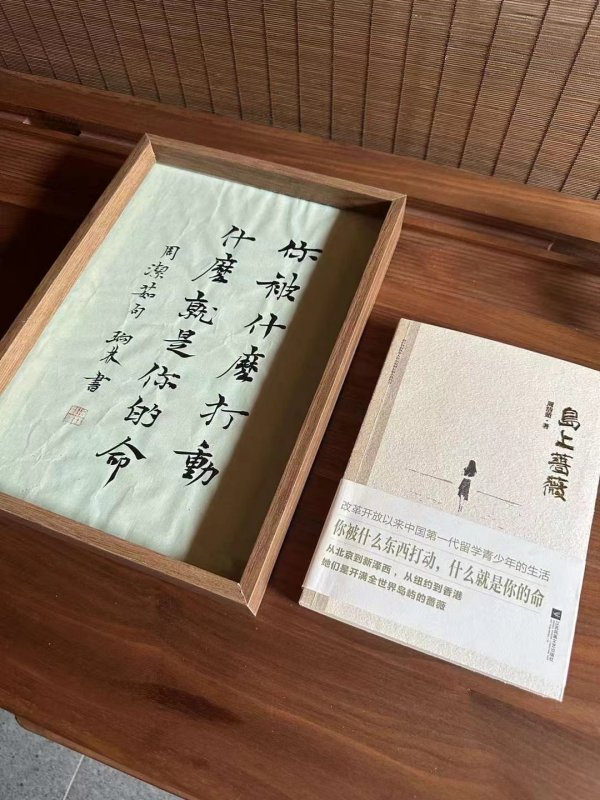 你被什麼打動
什麼就是你的命
周潔茹句
書
島上薔薇
周潔茹·著
改革开放以来中国第一代留学青少年的生活
你被什么东西打动，什么就是你的命
从北京到新泽西，从纽约到香港
她们是开满全世界岛屿的蔷薇